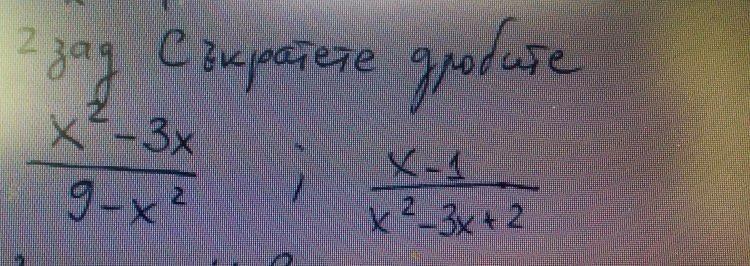 2 зад Съкратете дробите
x² - 3x / 9 - x² ; x - 1 / x² - 3x + 2